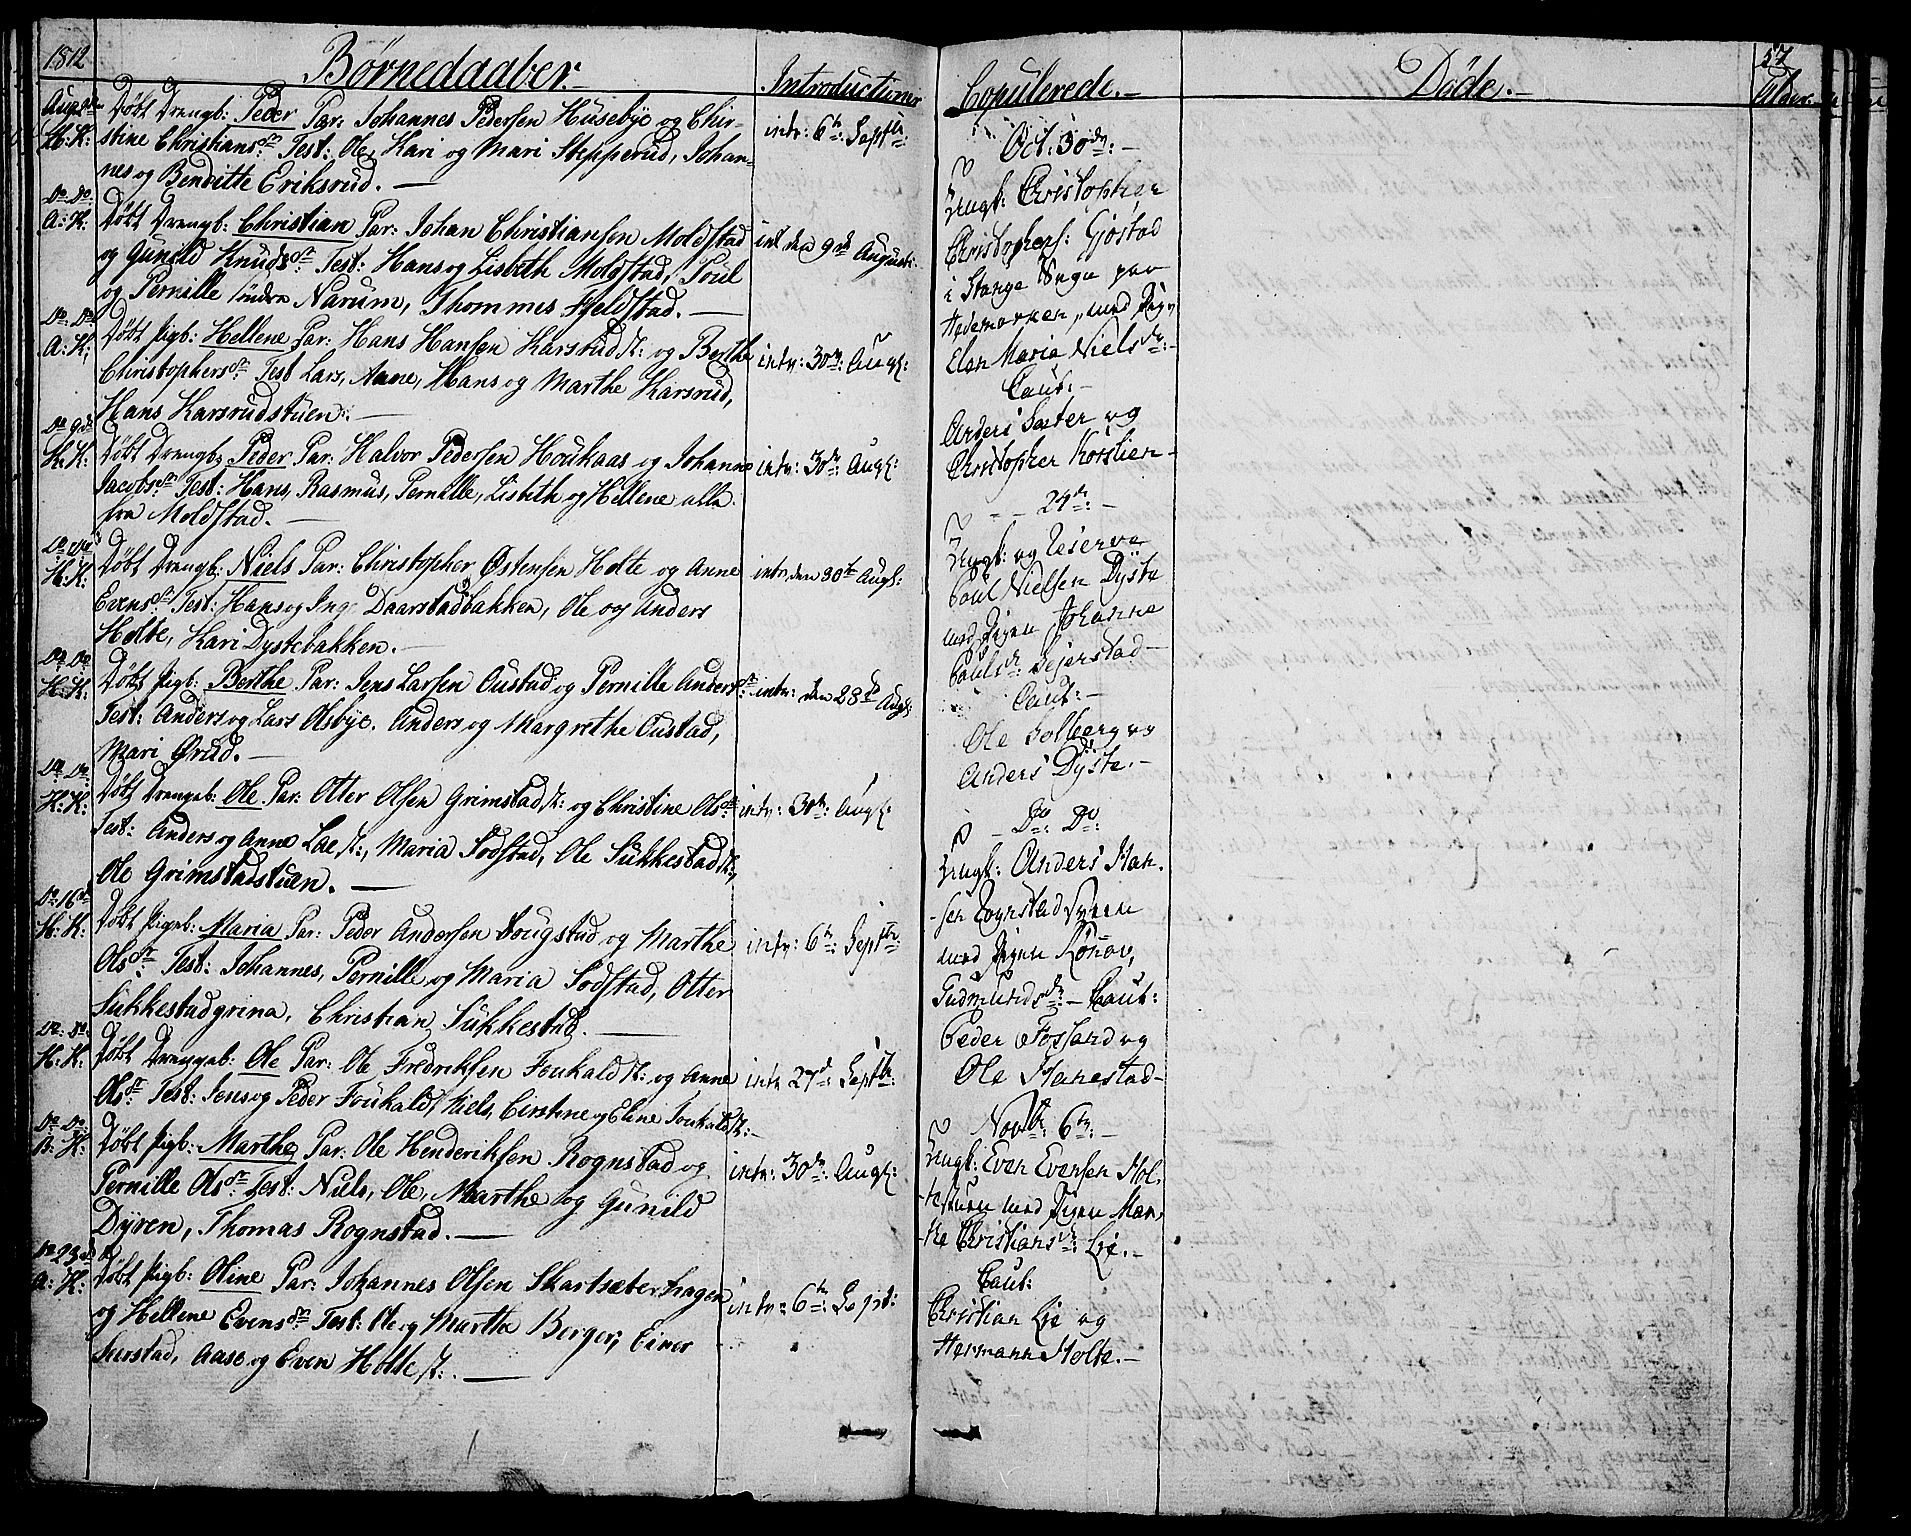 1812
Børnedaaber.
Introductioner
Copulerede.
Døde.
57
Alder.
Aug: 2den
H: K:
Døbt Drengb: Peder Par: Johannes Pedersen Husebye og Chir-
stine Christiansdtr: Test: Ole, Kari og Mari Stepperud, Johan-
nes og Benditte Eriksrud.
intr: 6te Septbr:
Do Do
A: K:
Døbt Drengb: Christian Par: Johan Christiansen Moldstad
og Gunild Knudsdtr Test: Hans og Lisbeth Moldstad, Poul
og Pernille søndre Narum, Thommes Fjeldstad.
int den 9de Augusti
Do Do
A: K:
Døbt Pigb: Hellene Par: Hans Hansen Karsrud st: og Berthe
Christophersdtr: Test Lars, Anne, Hans og Marthe Karsrud,
Hans Karsrudstuen.
intr: 30te: Augst:
Do 9de
K: K:
Døbt Drengb: Peder Par: Halvor Pedersen Houkaas og Johanne
Jacobsdtr Test: Hans, Rasmus, Pernille, Lisbeth og Hellene alle
fra Moldstad.
intr: 30te: Augst:
Do Do
H: K:
Døbt Drengb: Niels Par: Christopher Østensen Holte og Anne
Evensdtr Test: Hans og Ing Daarstadbakken, Ole og Anders
Holte, Kari Dystebakken.
intr den 30te Augst:
Do Do
H: K:
Døbt Pigb: Berthe Par: Jens Larsen Oustad og Pernille Andersdtr
Test: Anders og Lars Olsbye, Anders og Margrethe Oustad,
Mari Grud.
intr: den 23de Augst:
Do Do
H: K:
Døbt Drengeb: Ole Par: Otter Olsen Grimstad st: og Christine Olsdtr:
Test: Anders og Anne Lae st:, Maria Sodstad, Ole Sukkestad st:,
Ole Grimstadstuen.
intr: 30te: Augst:
Do 16de
H: K:
Døbt Pigeb: Maria Par: Peder Andersen Sougstad og Marthe
Olsdtr: Test: Johannes, Pernille og Maria Sodstad, Otter
Sukkestadgrina, Christian Sukkestad.
intr: 6te: Septbr:
Do Do
H: K:
Døbt Drengeb: Ole Par: Ole Fredriksen Foukald st: og Anne
Olsdtr: Test: Jens og Peder Foukald, Niels, Cirstine og Eline Foukald st:
intr 27de: Septbr:
Do Do
B: K:
Døbt Pigb: Marthe Par: Ole Henderiksen Rognstad og
Pernille Olsdtr Test: Niels, Ole, Marthe og Gunild
Dyren, Thomas Rognstad.
intr: 30te: Augst:
Do 23de
A: K:
Døbt Pigb: Oline Par: Johannes Olsen Skartsæterhagen
og Hellene Evensdtr Test: Ole og Marthe Berger, Einer
Seirstad, Aase og Even Holte st:.
intr: 6te: Sept:
Oct: 30te:
Ungk: Christopher
Christophers: Gjøstad
i Stange Sogn paa
Hedemarken, med Pig
Elen Maria Nielsdtr:
Caut:
Anders Sæter og
Christopher Korslien
24de:
Ungk: og Reserve
Poul Nielsen Dyste
med Pigen Johanne
Poulsdtr: Sejerstad
Caut:
Ole Solberg og
Anders Dyste.
Do: Do:
Ungk: Anders Han-
sen Rognstad
med Pigen Rønnov,
Gudmundsdtr: Caut:
Peder Fossand og
Ole Hanestad
Novbr: 6te:
Ungk: Even Evensen Hol-
testuen med Pigen Mar-
the Christiansdtr: Lie.
Caut:
Christian Lie og
Hermann Holte.